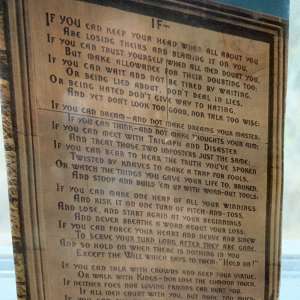 IF—
IF YOU CAN KEEP YOUR HEAD WHEN ALL ABOUT YOU
ARE LOSING THEIRS AND BLAMING IT ON YOU,
IF YOU CAN TRUST YOURSELF WHEN ALL MEN DOUBT YOU,
BUT MAKE ALLOWANCE FOR THEIR DOUBTING TOO;
IF YOU CAN WAIT AND NOT BE TIRED BY WAITING,
OR BEING LIED ABOUT, DON'T DEAL IN LIES,
OR BEING HATED DON'T GIVE WAY TO HATING,
AND YET DON'T LOOK TOO GOOD, NOR TALK TOO WISE:
IF YOU CAN DREAM—AND NOT MAKE DREAMS YOUR MASTER;
IF YOU CAN THINK—AND NOT MAKE THOUGHTS YOUR AIM;
IF YOU CAN MEET WITH TRIUMPH AND DISASTER
AND TREAT THOSE TWO IMPOSTORS JUST THE SAME;
IF YOU CAN BEAR TO HEAR THE TRUTH YOU'VE SPOKEN
TWISTED BY KNAVES TO MAKE A TRAP FOR FOOLS,
OR WATCH THE THINGS YOU GAVE YOUR LIFE TO, BROKEN,
AND STOOP AND BUILD 'EM UP WITH WORN-OUT TOOLS:
IF YOU CAN MAKE ONE HEAP OF ALL YOUR WINNINGS
AND RISK IT ON ONE TURN OF PITCH-AND-TOSS,
AND LOSE, AND START AGAIN AT YOUR BEGINNINGS
AND NEVER BREATHE A WORD ABOUT YOUR LOSS;
IF YOU CAN FORCE YOUR HEART AND NERVE AND SINEW
TO SERVE YOUR TURN LONG AFTER THEY ARE GONE,
AND SO HOLD ON WHEN THERE IS NOTHING IN YOU
EXCEPT THE WILL WHICH SAYS TO THEM: "HOLD ON!"
IF YOU CAN TALK WITH CROWDS AND KEEP YOUR VIRTUE,
OR WALK WITH KINGS—NOR LOSE THE COMMON TOUCH,
IF NEITHER FOES NOR LOVING FRIENDS CAN HURT YOU,
IF ALL MEN COUNT WITH YOU, BUT NONE TOO MUCH;